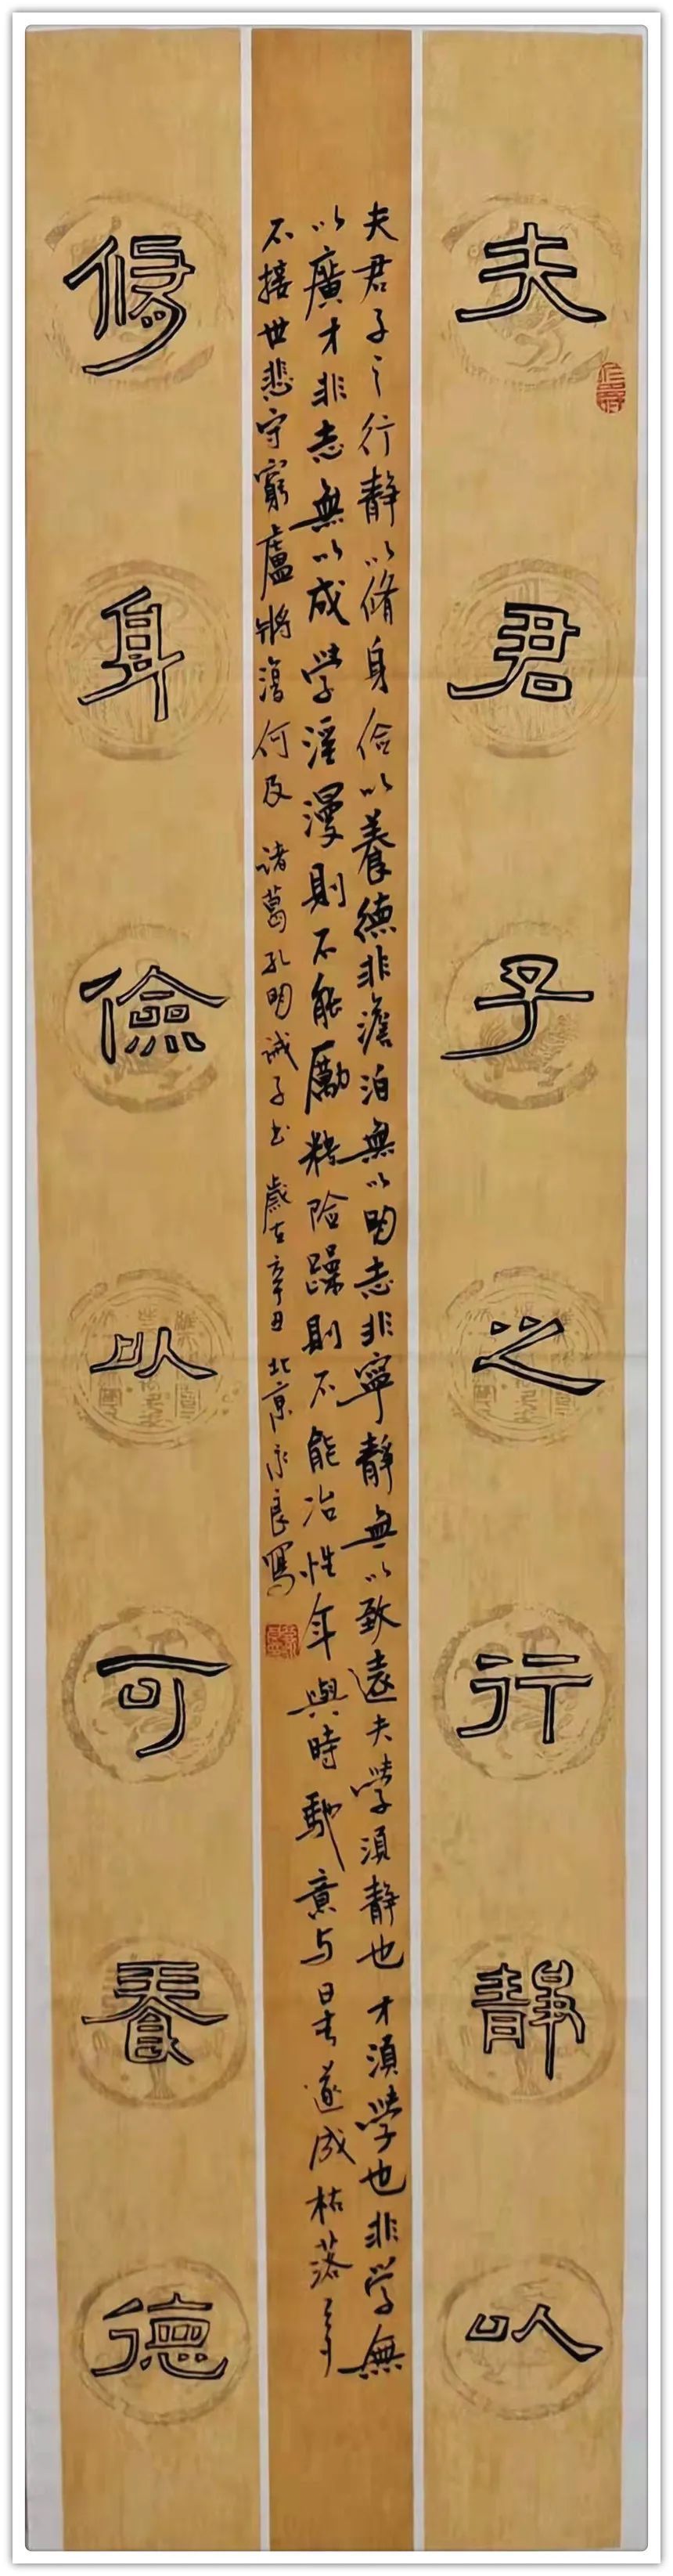 夫君子之行靜以
夫君子之行靜以脩身儉以養德非澹泊無以明志非寧靜無以致遠夫學須靜也才須學也非學無
以廣才非志無以成學淫漫則不能勵精險躁則不能冶性年與時馳意与日去遂成枯落多
不接世悲守窮廬將復何及 诸葛孔明诫子书 歲在辛丑 北京永良寫
修身儉以可養德